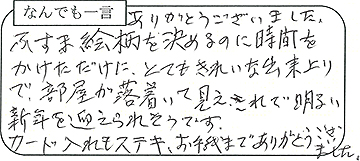 なんでも一言
ありがとうございました。
ふすま絵柄を決めるのに時間を
かけただけに、とてもきれいな出来上り
で部屋が落着いて見えきれで明るい
新年を迎えられそうです。
カード入れもステキ、お手紙までありがとうござい
ました。